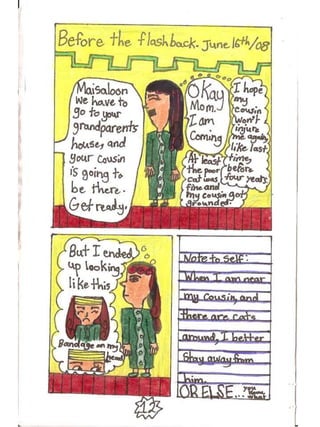 Before the flashback. June 15th/08
Maisaloon
We have to
go to your
grandparents
house, and
your cousin
is going to
be there.
Get ready.
Okay
Mom.
I am
Coming
I hope
my
cousin
won't
injure
me again,
like last
time,
before
four years.
At least
the poor
cat was
fine and
my cousin got
grounded.
But I ended
up looking
like this,
Bandage on my
head
Note to self:
When I am near
my cousin, and
there are cats
around, I better
Stay away from
him.
OR ELSE... you
know
what
12